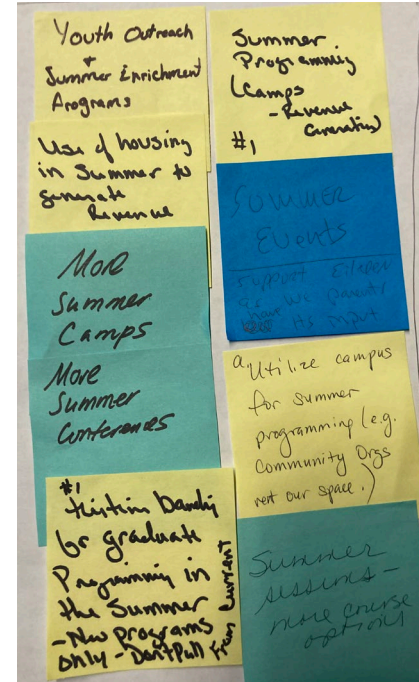 Youth Outreach
+
Summer Enrichment
Programs
Use of housing
in Summer to
generate
Revenue
More
Summer
Camps
More
Summer
Conferences
#1
for graduate
Programming in
the Summer
- New programs
only - Don't Pull
From Current
Summer
Programming
(Camps
- Revenue
Generation)
#1
SUMMER
EVENTS
Support
as we
have its input
a. Utilize campus
for summer
programming (e.g.
Community Orgs
rent our space.)
Summer
sessions -
more course
options